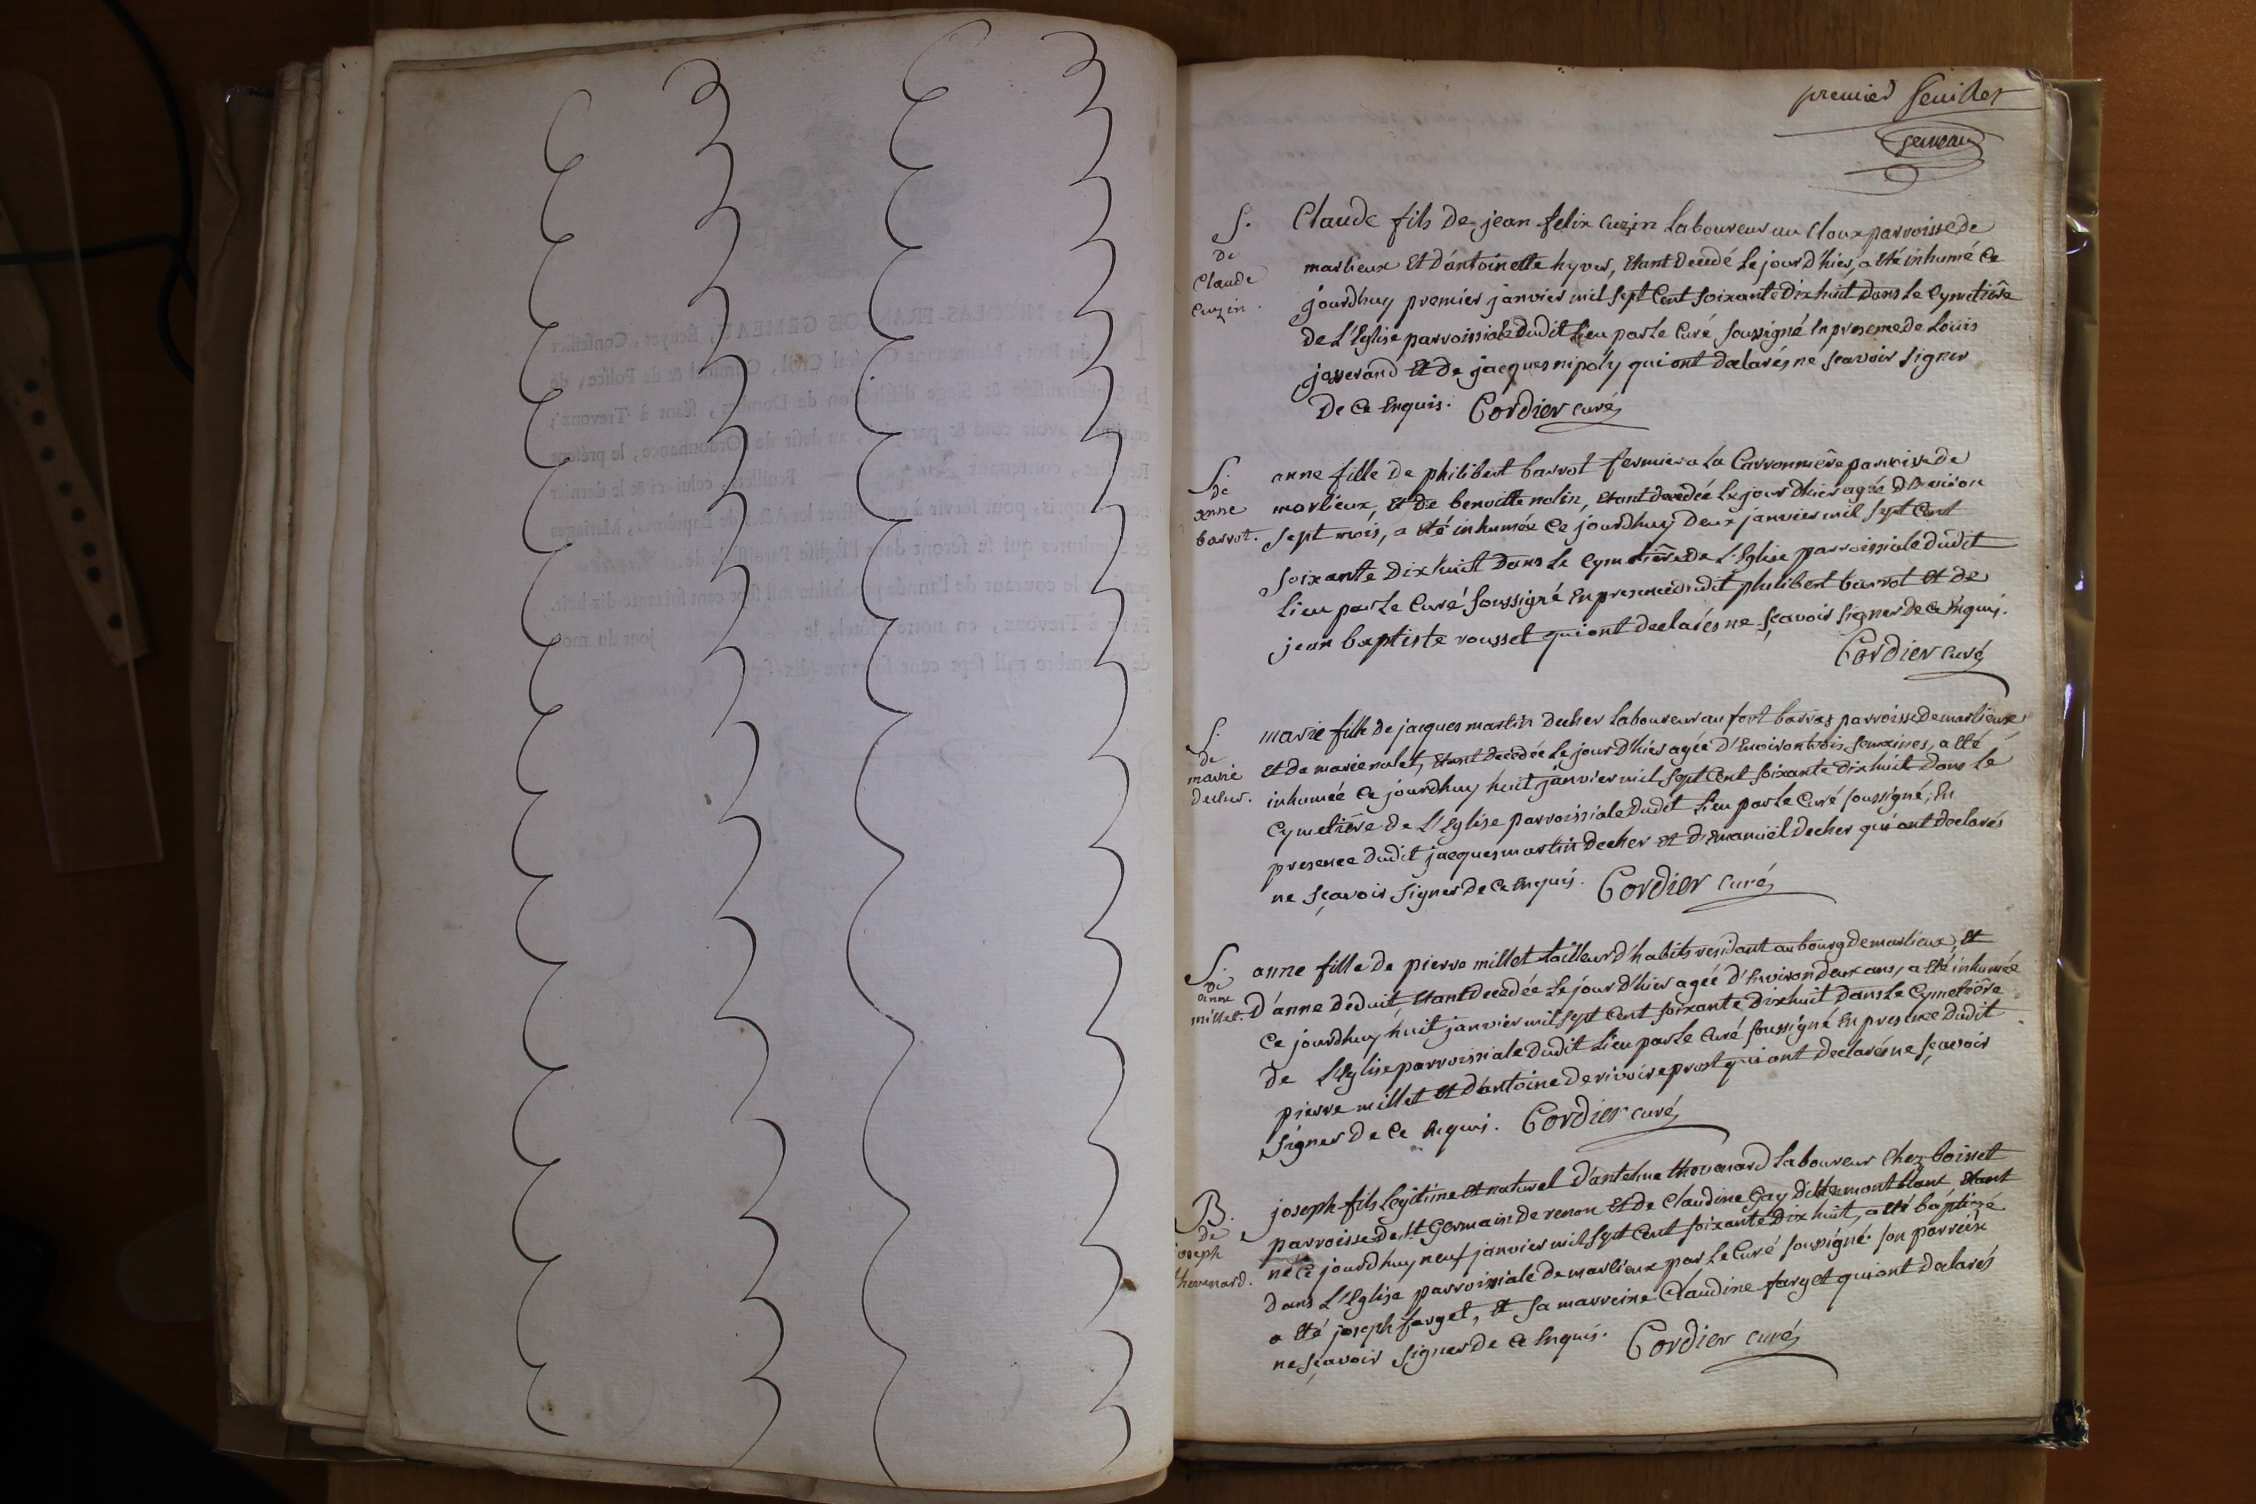 premier feuillet
S.
de
Claude
Cuzin.
Claude fils de jean felix Cuzin Laboureur au Cloux parroisse de
marlieux Et d'antoinette hyver, Etant decedé Le jour d'hier, a Eté inhumé Ce
jourdhuy premier janvier mil sept Cent soixante Dix huit Dans Le Cymetiêre
de L'Eglise parroissiale Dudit Lieu par Le Curé soussigné En presence de Louis
josserand Et De jacques nipoly qui ont declarés ne sçavoir signer
De Ce Enquis. Cordier curé
S.
de
anne
barrot.
anne fille De philibert barrot fermier a La Carronniêre parroisse de
marlieux, Et De benoitte nolin, Etant decedée Le jour d'hier agée D'Environ
sept mois, a Eté inhumée Ce jourdhuy Deux janvier mil sept Cent
soixante Dix huit Dans Le Cymetiêre De L'Eglise parroissiale dudit
Lieu par Le Curé soussigné En presence dudit philibert barrot Et De
jean baptiste rousset qui ont declarés ne sçavoir signer De Ce Enquis.
Cordier curé
S.
de
marie
decher.
marie fille De jacques martin Decher Laboureur au fort barras parroisse De marlieux
Et De marie nalet, Etant decedée Le jour d'hier agée d'Environ trois semaines, a Eté
inhumée Ce jourdhuy huit janvier mil sept Cent soixante Dix huit Dans Le
Cymetiêre de L'Eglise parroissiale Dudit Lieu par Le Curé soussigné, En
presence Dudit jacques martin Decher Et D'Emanuël Decher qui ont declarés
ne sçavoir signer De Ce Enquis. Cordier curé
S.
de
anne
millet.
anne fille De pierre millet tailleur D'habits residant au bourg de marlieux, Et
D'anne Deduit, Etant Decedée Le jour D'hier agée d'Environ Deux ans, a Eté inhumée
Ce jourdhuy huit janvier mil sept Cent soixante Dix huit, Dans Le Cymetiêre
De L'Eglise parroissiale Dudit Lieu par Le Curé soussigné En presence Dudit
pierre millet Et D'antoine Derivoire prost qui ont Declarés ne sçavoir
signer De Ce Enquis. Cordier curé
B.
de
joseph
thevenard.
joseph fils Legitime Et naturel D'antelme thevenard Laboureur Chez boisset
parroisse De St Germain De renon Et De Claudine Gay Ditte mont blanc, Etant
né Ce jourdhuy neuf janvier mil sept Cent soixante Dix huit, a Eté baptizé
Dans L'Eglise parroissiale De marlieux par Le Curé soussigné. son parrein
a Eté joseph farget, Et sa marreine Claudine farget qui ont declarés
ne sçavoir signer De Ce Enquis. Cordier curé